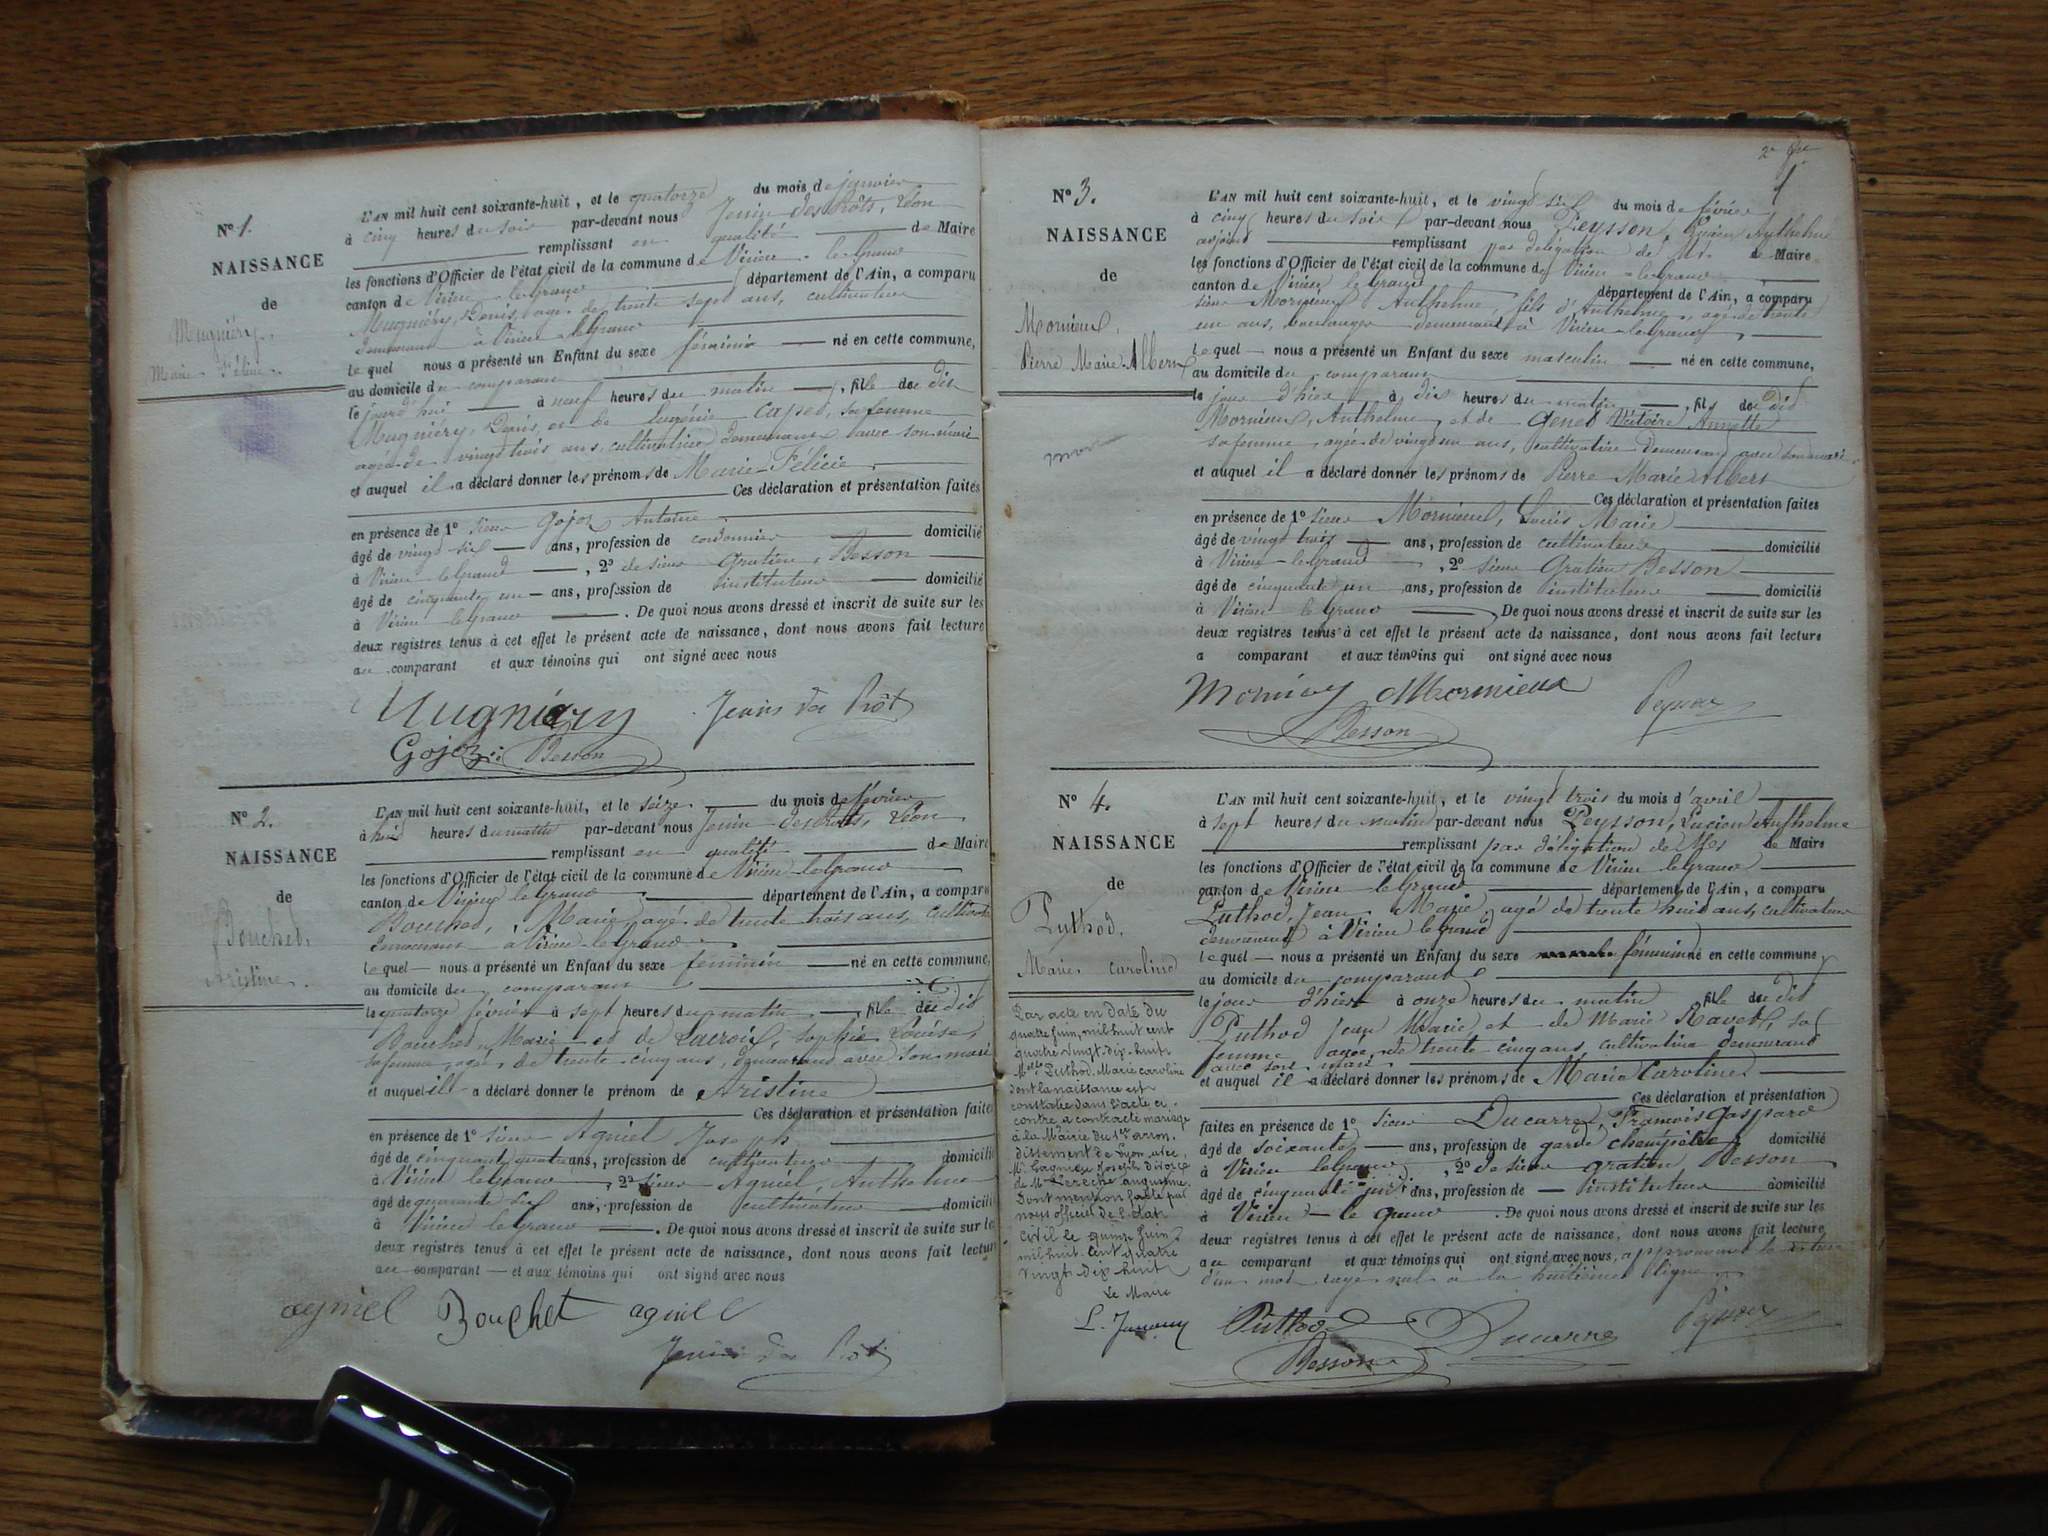 N° 1.
NAISSANCE
de
Mugniéry,
Marie Félicie.
L'AN mil huit cent soixante-huit, et le quatorze du mois de janvier
à cinq heures du soir par-devant nous Jenin des Prôts, Léon
remplissant en qualité de Maire
les fonctions d'Officier de l'état civil de la commune de Virieu-le-Grand
canton de Virieu-le-Grand département de l'Ain, a comparu
Mugniéry, Denis, agé de trente sept ans, cultivateur
demeurant à Virieu-le-Grand
lequel nous a présenté un Enfant du sexe féminin né en cette commune,
au domicile du comparant
le jourd'hui à neuf heures du matin, fille du dit
Mugniéry, Denis, et de Eugénie Capet, sa femme
agée de vingt trois ans, cultivatrice demeurant avec son mari
et auquel il a déclaré donner les prénoms de Marie-Félicie
Ces déclaration et présentation faites
en présence de 1° sieur Gojoz Antoine
âgé de vingt six ans, profession de cordonnier domicilié
à Virieu-le-Grand, 2° de sieur Gratien Besson
âgé de cinquante un ans, profession de instituteur domicilié
à Virieu le Grand. De quoi nous avons dressé et inscrit de suite sur les
deux registres tenus à cet effet le présent acte de naissance, dont nous avons fait lecture
au comparant et aux témoins qui ont signé avec nous
Mugniéry Jenin des Prôts
Gojoz Besson
N° 2.
NAISSANCE
de
Bouchet,
Aristine.
L'AN mil huit cent soixante-huit, et le seize du mois de février
à huit heures du matin par-devant nous Jenin des Prôts, Léon
remplissant en qualité de Maire
les fonctions d'Officier de l'état civil de la commune de Virieu-le-Grand
canton de Virieu le Grand département de l'Ain, a comparu
Bouchet, Marie, agé de trente trois ans, cultivateur
demeurant à Virieu-le-Grand
lequel nous a présenté un Enfant du sexe féminin né en cette commune,
au domicile du comparant
le quatorze février à sept heures du matin, fille du dit
Bouchet, Marie et de Lacroix, Sophie Louise,
sa femme, agée de trente cinq ans, demeurant avec son mari
et auquel il a déclaré donner le prénom de Aristine
Ces déclaration et présentation faites
en présence de 1° sieur Agniel Joseph
âgé de cinquante quatre ans, profession de cultivateur domicilié
à Virieu le Grand, 2° sieur Agniel, Anthelme
âgé de quarante six ans, profession de cultivateur domicilié
à Virieu le Grand. De quoi nous avons dressé et inscrit de suite sur les
deux registres tenus à cet effet le présent acte de naissance, dont nous avons fait lecture
au comparant et aux témoins qui ont signé avec nous
agniel Bouchet agniel
Jenin des Prôts
N° 3.
NAISSANCE
de
Mornieux,
Pierre Marie Albert
mort
L'AN mil huit cent soixante-huit, et le vingt six du mois de février
à cinq heures du soir par-devant nous Peysson, Lucien Anthelme
adjoint remplissant par délégation de Mr. de Maire
les fonctions d'Officier de l'état civil de la commune de Virieu-le-Grand
canton de Virieu le Grand département de l'Ain, a comparu
sieur Mornieux Anthelme, fils d'Anthelme, agé de trente
un ans, boulanger demeurant à Virieu-le-Grand
lequel nous a présenté un Enfant du sexe masculin né en cette commune,
au domicile du comparant
le jour d'hier à dix heures du matin, fils du dit
Mornieux, Anthelme et de Genet Victoire Annette
sa femme, agée de vingt un ans, cultivatrice demeurant avec son mari
et auquel il a déclaré donner les prénoms de Pierre Marie Albert
Ces déclaration et présentation faites
en présence de 1° sieur Mornieux, Louis Marie
âgé de vingt trois ans, profession de cultivateur domicilié
à Virieu-le-Grand, 2° sieur Gratien Besson
âgé de cinquante un ans, profession de instituteur domicilié
à Virieu le Grand, De quoi nous avons dressé et inscrit de suite sur les
deux registres tenus à cet effet le présent acte de naissance, dont nous avons fait lecture
a comparant et aux témoins qui ont signé avec nous
Mornieux Peysson
Besson
N° 4.
NAISSANCE
de
Puthod,
Marie Caroline
Par acte en date du
quatre Juin, mil huit cent
quatre vingt-dix-huit
Melle Puthod, Marie Caroline
dont la naissance est
constatée dans l'acte ci-
contre a contracté mariage
à la Mairie du 1er arron-
dissement de Lyon avec
Mr Joseph divorcé
de Augustine.
Dont mention faite par
nous officier de l'état
civil le quinze Juin
mil huit cent quatre
vingt dix huit
Le Maire
L'AN mil huit cent soixante-huit, et le vingt trois du mois d'avril
à sept heures du matin par-devant nous Peysson, Lucien Anthelme
remplissant par délégation de Mr de Maire
les fonctions d'Officier de l'état civil de la commune de Virieu le Grand
canton de Virieu le Grand département de l'Ain, a comparu
Puthod, Jean Marie, agé de trente huit ans, cultivateur
demeurant à Virieu le Grand
lequel nous a présenté un Enfant du sexe féminin né en cette commune,
au domicile du comparant
le jour d'hier à onze heures du matin fille du dit
Puthod Jean Marie et de Marie Ravet, sa
femme agée de trente cinq ans, cultivatrice demeurant
avec son mari
et auquel il a déclaré donner les prénoms de Marie Caroline
Ces déclaration et présentation
faites en présence de 1° sieur Ducarre, François Gaspard
âgé de soixante ans, profession de garde champêtre domicilié
à Virieu le Grand, 2° de sieur Gratien Besson
âgé de cinquante ans, profession de instituteur domicilié
à Virieu-le Grand. De quoi nous avons dressé et inscrit de suite sur les
deux registres tenus à cet effet le présent acte de naissance, dont nous avons fait lecture
au comparant et aux témoins qui ont signé avec nous, approuvant la rature
d'un mot rayé nul à la huitième ligne
Puthod Ducarre Peysson
Besson